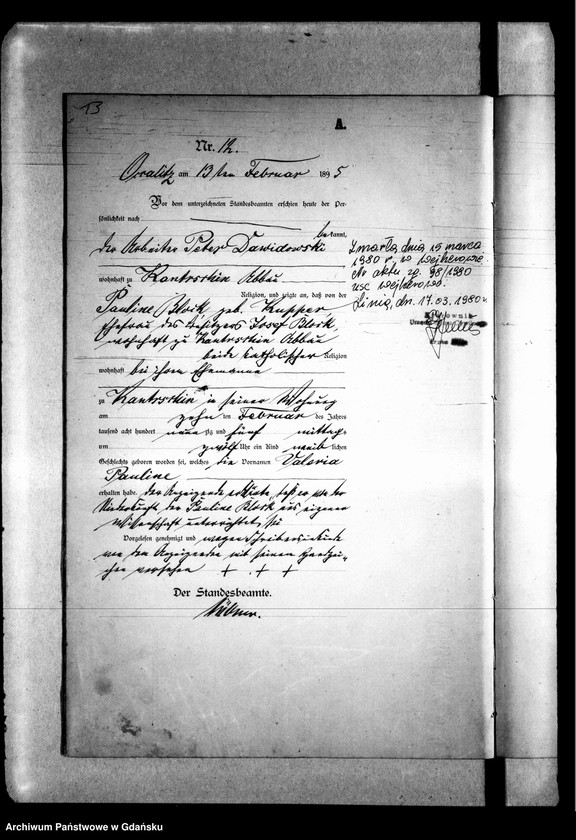 13
A.
Nr. 12.
am 13ten Februar 1895
Vor dem unterzeichneten Standesbeamten erschien heute der Per-
sönlichkeit nach
bekannt,
der Arbeiter Peter Dawidowski
wohnhaft zu Kantrschin Abbau
Religion, und zeigte an, daß von der
Pauline Block, geb. Kupper,
Ehefrau des Besitzers Josef Block,
wohnhaft zu Kantrschin Abbau
beide katholischer Religion
wohnhaft bei ihrem Ehemanne
zu Kantrschin in seiner Wohnung
am zehn ten Februar des Jahres
tausend acht hundert neunzig und fünf mittags
um zwölf Uhr ein Kind weiblichen
Geschlechts geboren worden sei, welches die Vornamen Valeria
Pauline
erhalten habe. Der Anzeigende erklärte, daß er von der
Niederkunft der Pauline Block aus eigener
Wissenschaft unterrichtet sei
Vorgelesen, genehmigt und wegen Schreibensunkunde
von dem Anzeigenden mit seinem Handzei-
chen versehen + + +
Der Standesbeamte.
Zmarła dnia 15 marca
1980 r. w Wejherowie
Nr aktu zg. 98/1980
USC Wejherowo.
Linia, dn. 17.03.1980 r
Archiwum Państwowe w Gdańsku